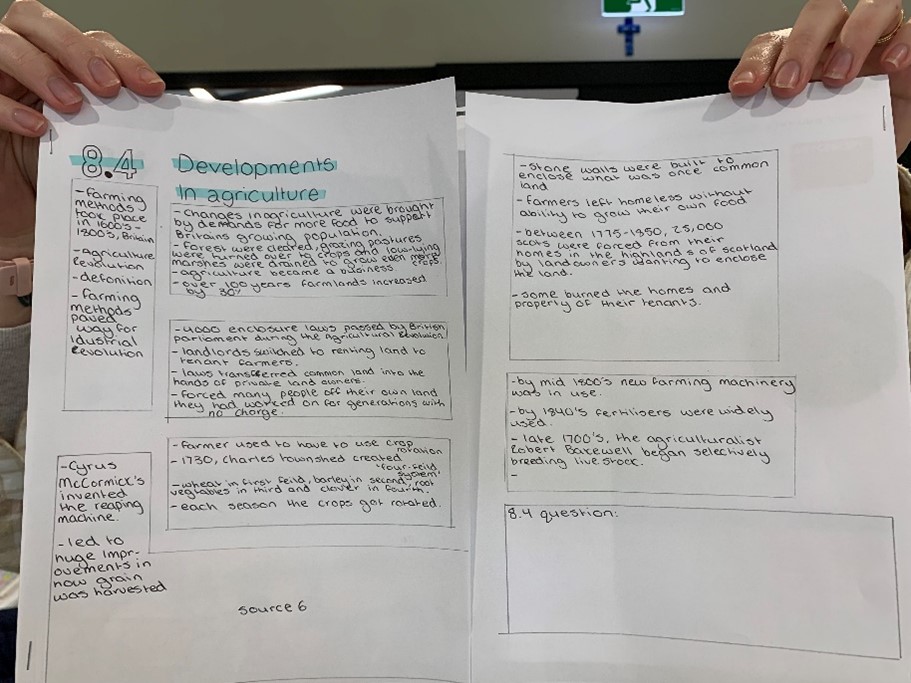 8.4
Developments
In agriculture
- farming
methods
took place
in 1600's-
1800's, Britain
- agriculture
Revolution
- defonition
- farming
methods
paved
way for
Idustrial
Revolution
- changes in agriculture were brought
by demands for more food to support
Britains growing population.
- forest were cleared, grazing pastures
were turned over to crops and low-lying
marshes were drained to grow even more
crops.
- agriculture became a business.
- over 100 years farmlands increased
by 30%
- 4000 enclosure laws passed by British
parliament during the Agricultural Revolution
- landlords switched to renting land to
tenant farmers.
- laws transferred common land into the
hands of private land owners.
- forced many people off their own land
they had worked on for generations with
no charge.
- farmer used to have to use crop
rotation
- 1730, Charles townshed created
"four-feild
system"
- wheat in first feild, barley in second, root
vegtables in third and clover in fourth.
- each season the crops got rotated.
- Cyrus
McCormick's
invented
the reaping
machine.
- led to
huge impr-
ovements in
how grain
was harvested
source 6
- stone walls were built to
enclose what was once common
land
- farmers left homeless without
ability to grow their own food
- between 1775-1850, 25,000
scots were forced from their
homes in the highlands of scotland
by landowners wanting to enclose
the land.
- some burned the homes and
property of their tenants.
- by mid 1800's new farming machinery
was in use.
- by 1840's fertilisers were widely
used.
- late 1700's, the agriculturalist
Robert Bakewell began selectively
breeding live stock.
-
8.4 question: